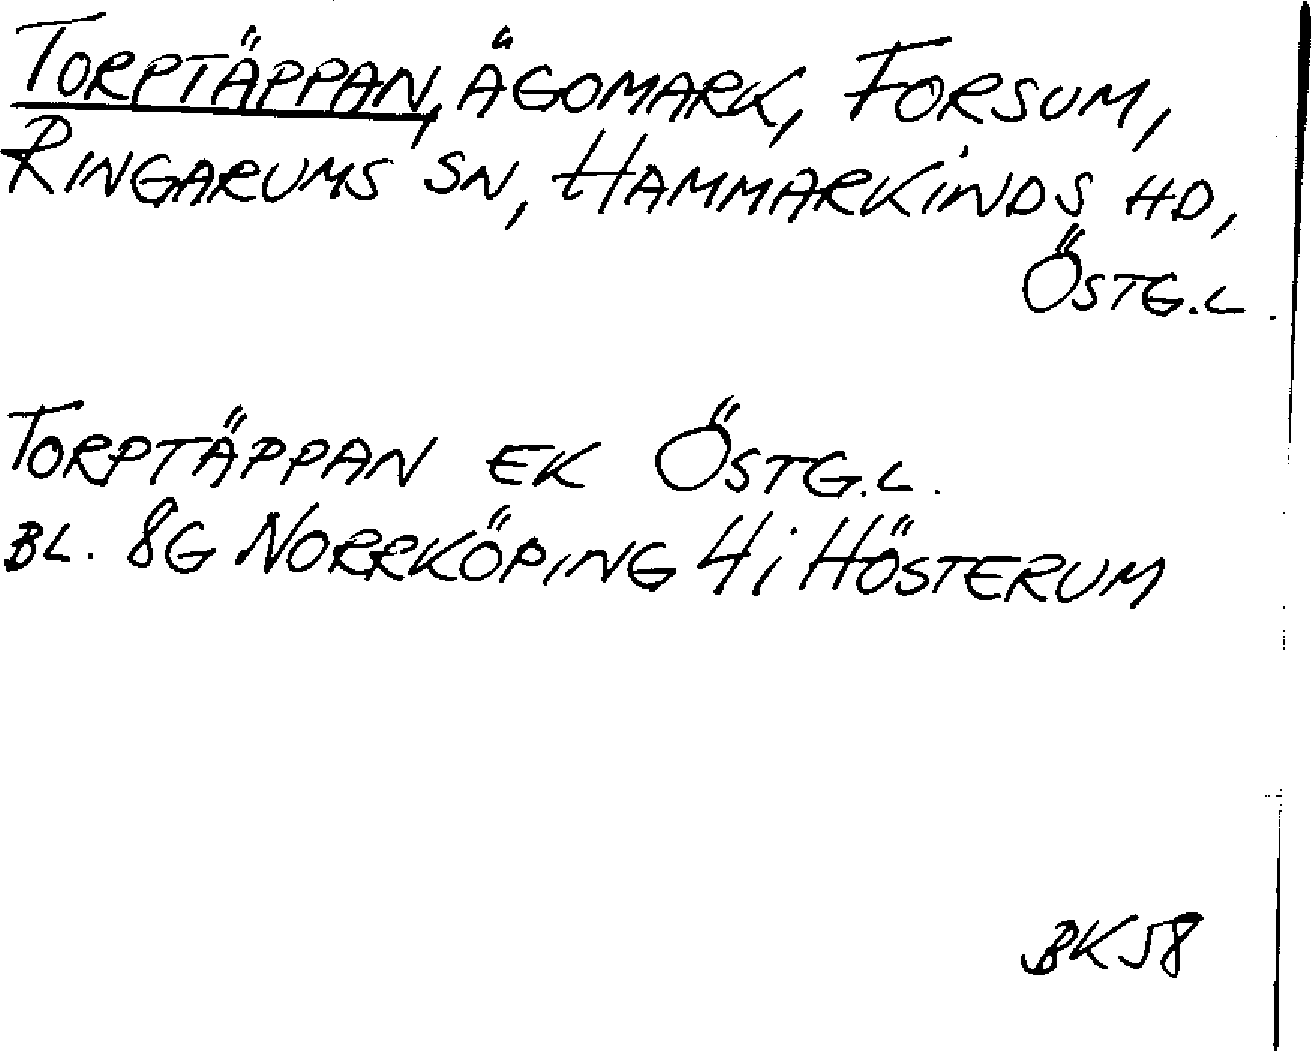 TORPTÄPPAN, ÄGOMARK, FORSUM,
RINGARUMS SN, HAMMARKINDS HD,
ÖSTG.L.
TORPTÄPPAN EK ÖSTG.L.
BL. 8G NORRKÖPING 4i HÖSTERUM
BK58